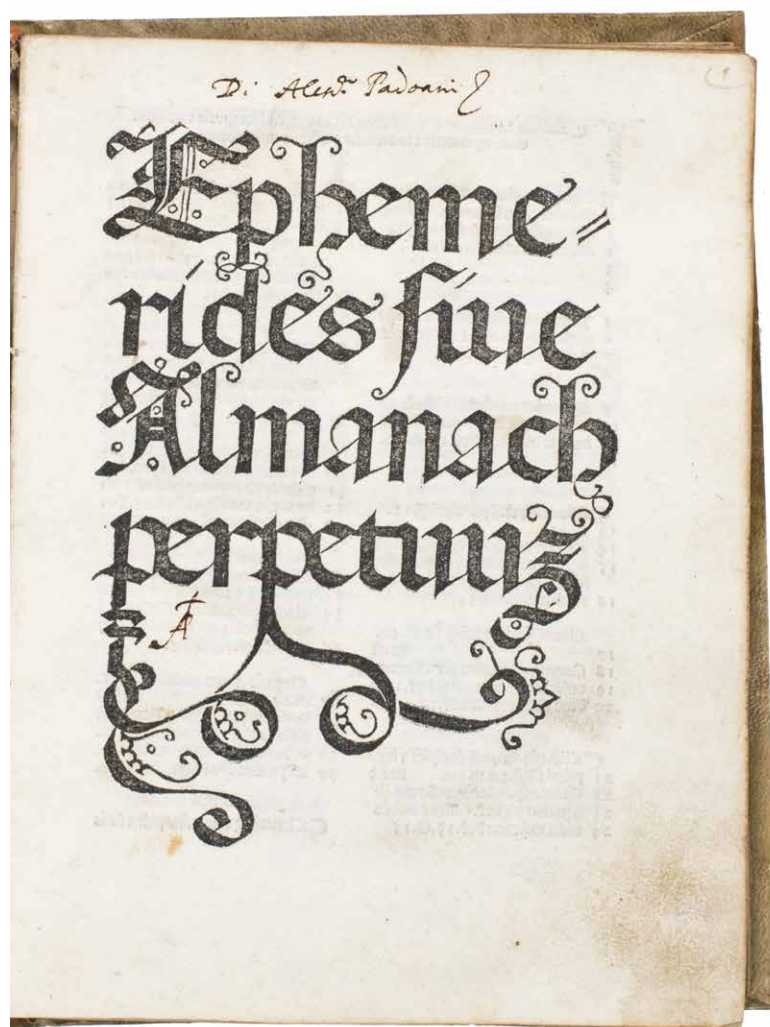 Di Alesn.ᵒ Padoani
1
Epheme=
rides ſiue
Almanach
perpetuuz